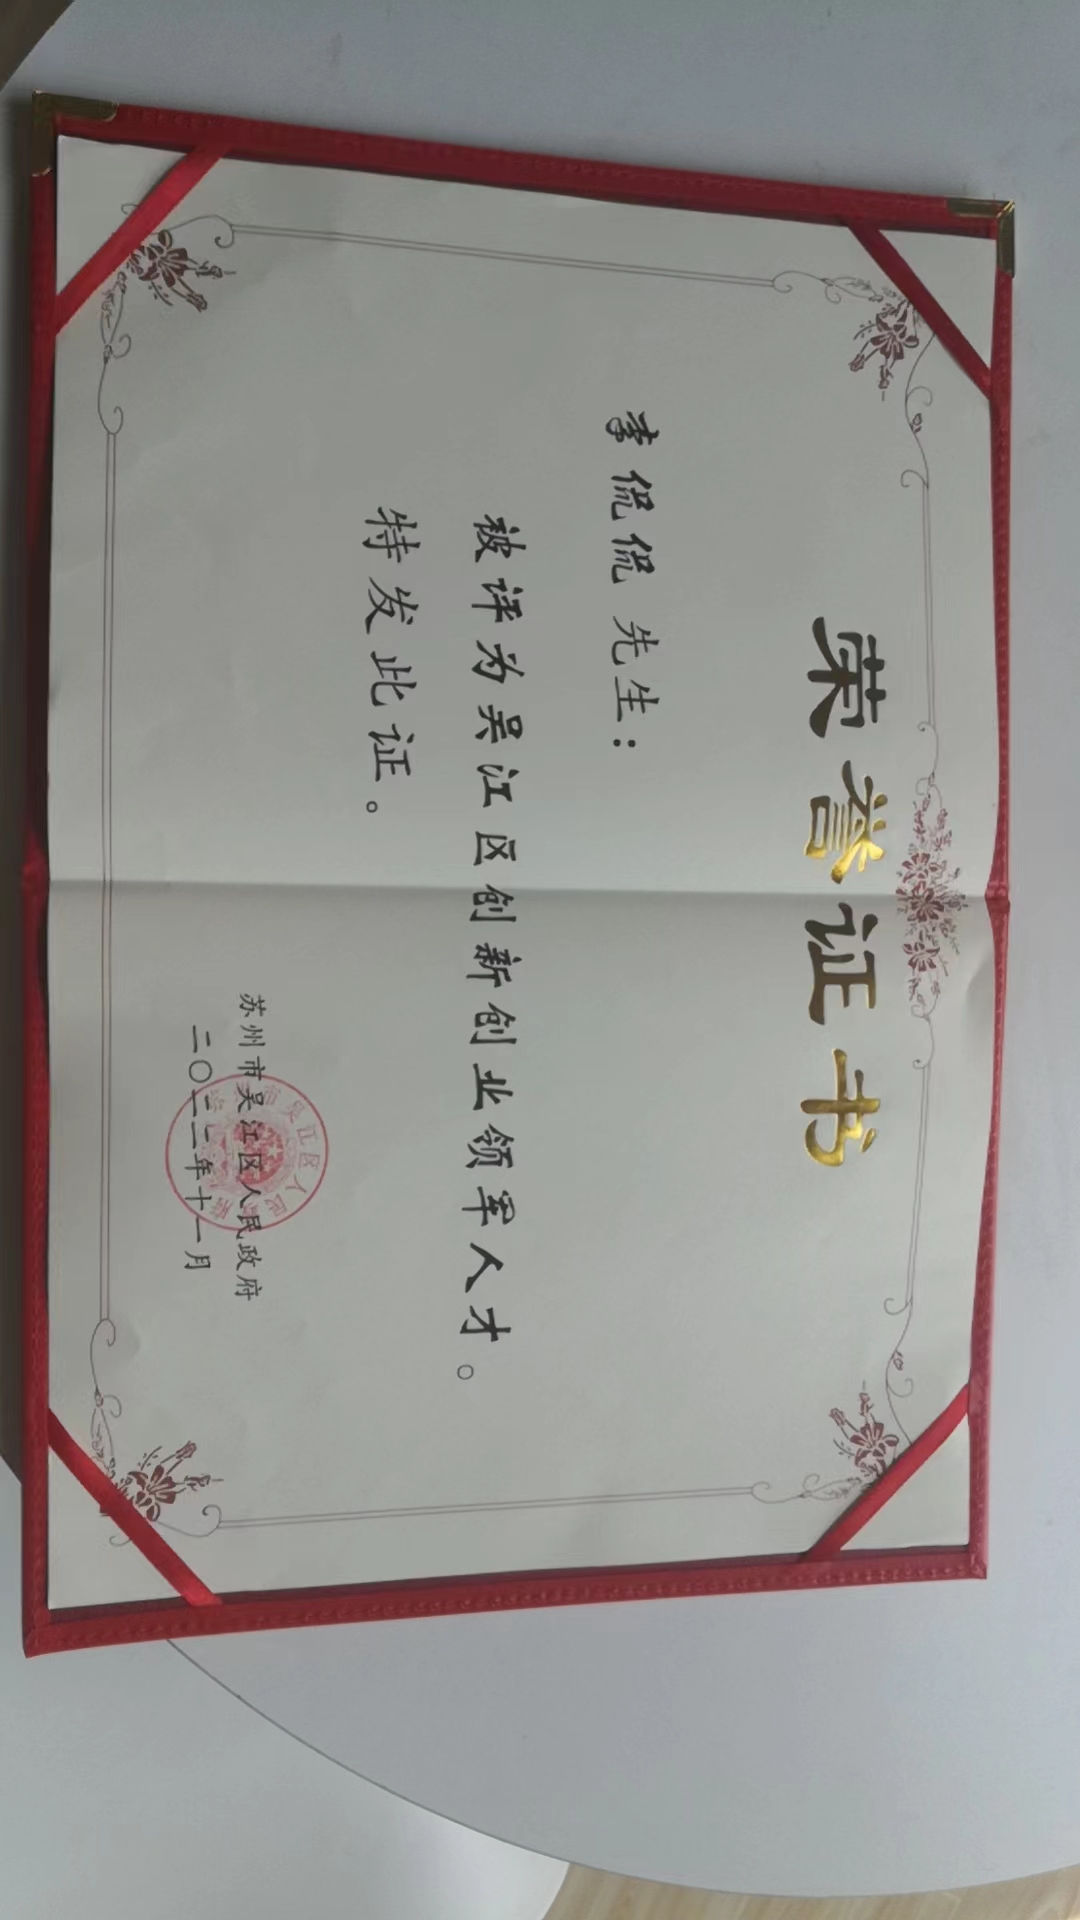 荣誉证书
李侃侃 先生：
被评为吴江区创新创业领军人才。
特发此证。
苏州市吴江区人民政府
二〇二二年十一月